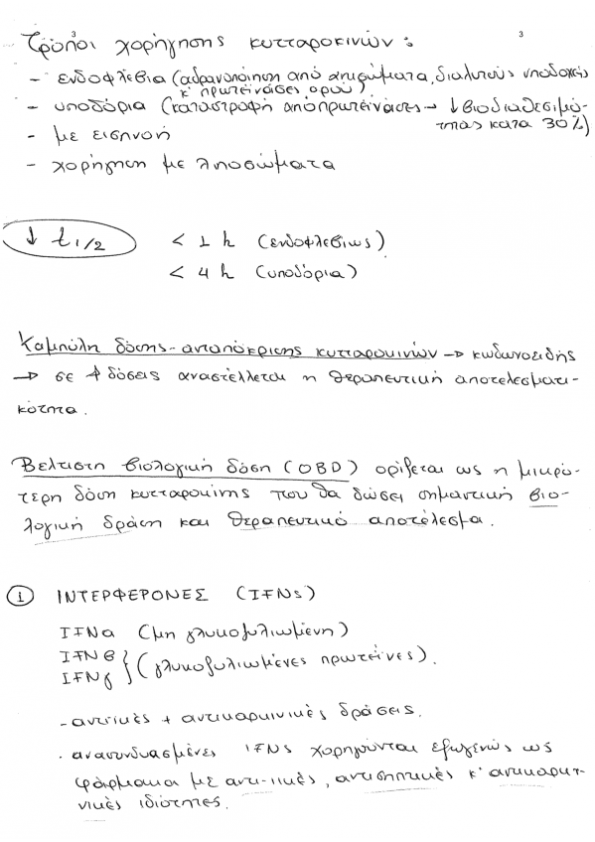 3
3
Τρόποι χορήγησης κυτταροκινών:
- ενδοφλέβια (αδρανοποίηση από αντισώματα, διαλυτούς υποδοχείς
κ' πρωτεϊνάσες ορού)
- υποδόρια (καταστροφή από πρωτεϊνάσες → ↓ βιοδιαθεσιμό-
τητας κατα 30%)
- με εισπνοή
- χορήγηση με λιποσώματα
↓ t1/2 < 1 h (ενδοφλεβίως)
< 4 h (υποδόρια)
Καμπύλη δόσης-ανταπόκρισης κυτταροκινών → κωδωνοειδής
→ σε ↑ δόσεις αναστέλλεται η θεραπευτική αποτελεσματι-
κότητα.
Βέλτιστη βιολογική δόση (OBD) ορίζεται ως η μικρό-
τερη δόση κυτταροκίνης που θα δώσει σημαντική βιο-
λογική δράση και θεραπευτικό αποτέλεσμα.
1 ΙΝΤΕΡΦΕΡΟΝΕΣ (IFNs)
IFNα (μη γλυκοζυλιωμένη)
IFNβ
IFNγ } (γλυκοζυλιωμένες πρωτεΐνες).
- αντιικές + αντικαρκινικές δράσεις.
. ανασυνδυασμένες IFNs χορηγούνται εξωγενώς ως
φάρμακα με αντι-ιικές, αντισηπτικές κ' αντικαρκι-
νικές ιδιότητες.